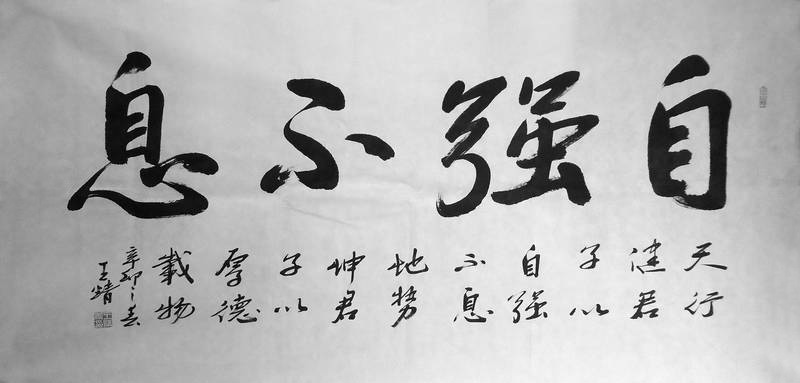 自强不息
天行
健君
子以
自强
不息
地势
坤君
子以
厚德
载物
辛卯之春
王